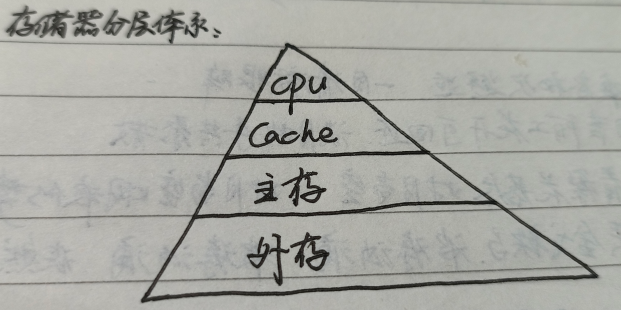 存储器分层体系：
cpu
Cache
主存
外存